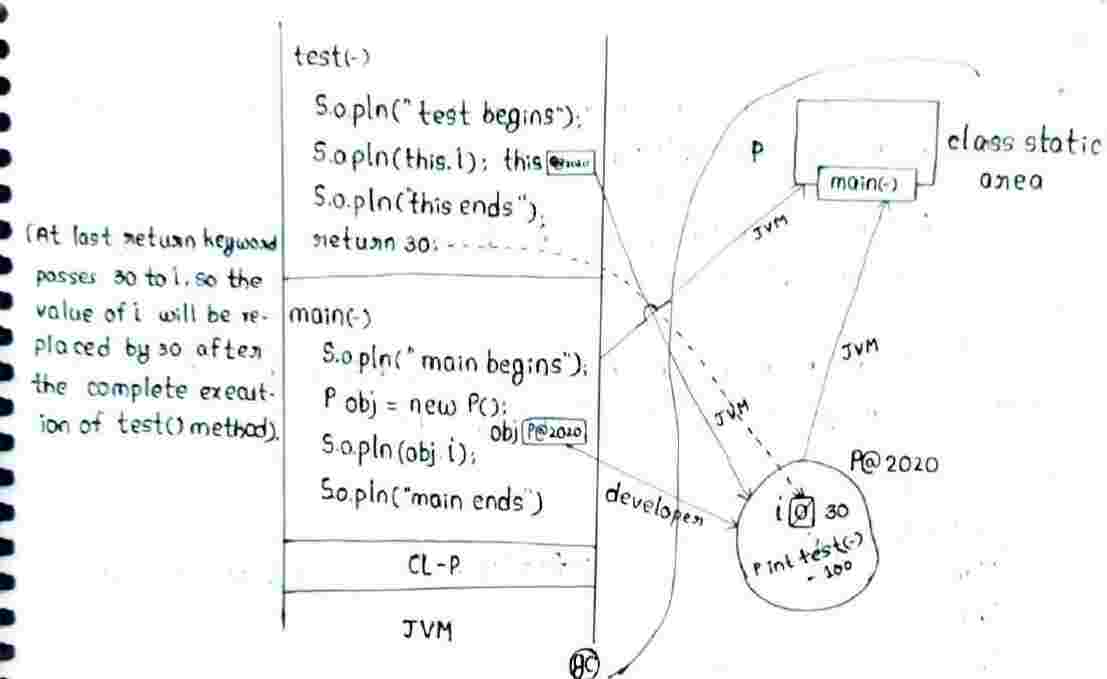 test(-)
S.o.pln("test begins");
S.o.pln(this.i); this
S.o.pln("this ends");
return 30;
(At last return keyword
passes 30 to i. so the
value of i will be re-
placed by 30 after
the complete execut-
ion of test() method).
main(-)
S.o.pln("main begins");
P obj = new P();
obj P@2020
S.o.pln(obj.i);
S.o.pln("main ends")
CL-P
JVM
P
class static
area
main(-)
JVM
JVM
JVM
developer
P@2020
i 0 30
P int test(-)
- 100